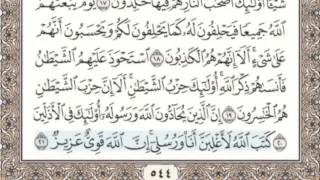 شَيْـًٔا أُو۟لَـٰٓئِكَ أَصْحَـٰبُ ٱلنَّارِ هُمْ فِيهَا خَـٰلِدُونَ ١٧ يَوْمَ يَبْعَثُهُمُ
ٱللَّهُ جَمِيعًا فَيَحْلِفُونَ لَهُۥ كَمَا يَحْلِفُونَ لَكُمْ وَيَحْسَبُونَ أَنَّهُمْ
عَلَىٰ شَىْءٍ أَلَآ إِنَّهُمْ هُمُ ٱلْكَـٰذِبُونَ ١٨ ٱسْتَحْوَذَ عَلَيْهِمُ ٱلشَّيْطَـٰنُ
فَأَنسَىٰهُمْ ذِكْرَ ٱللَّهِ أُو۟لَـٰٓئِكَ حِزْبُ ٱلشَّيْطَـٰنِ أَلَآ إِنَّ حِزْبَ ٱلشَّيْطَـٰنِ
هُمُ ٱلْخَـٰسِرُونَ ١٩ إِنَّ ٱلَّذِينَ يُحَآدُّونَ ٱللَّهَ وَرَسُولَهُۥٓ أُو۟لَـٰٓئِكَ فِى ٱلْأَذَلِّينَ
٢٠ كَتَبَ ٱللَّهُ لَأَغْلِبَنَّ أَنَا۠ وَرُسُلِىٓ إِنَّ ٱللَّهَ قَوِىٌّ عَزِيزٌ ٢١
٥٤٤